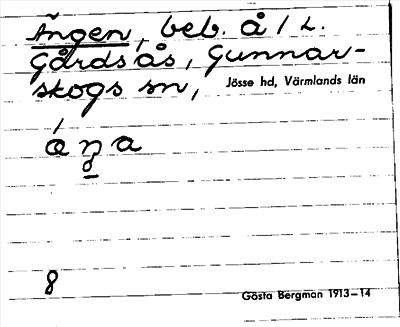 Ängen, beb. å / L.
Gårdsås, Gunnar-
skogs sn, Jösse hd, Värmlands län
á n̥̠ a
8
Gösta Bergman 1913–14